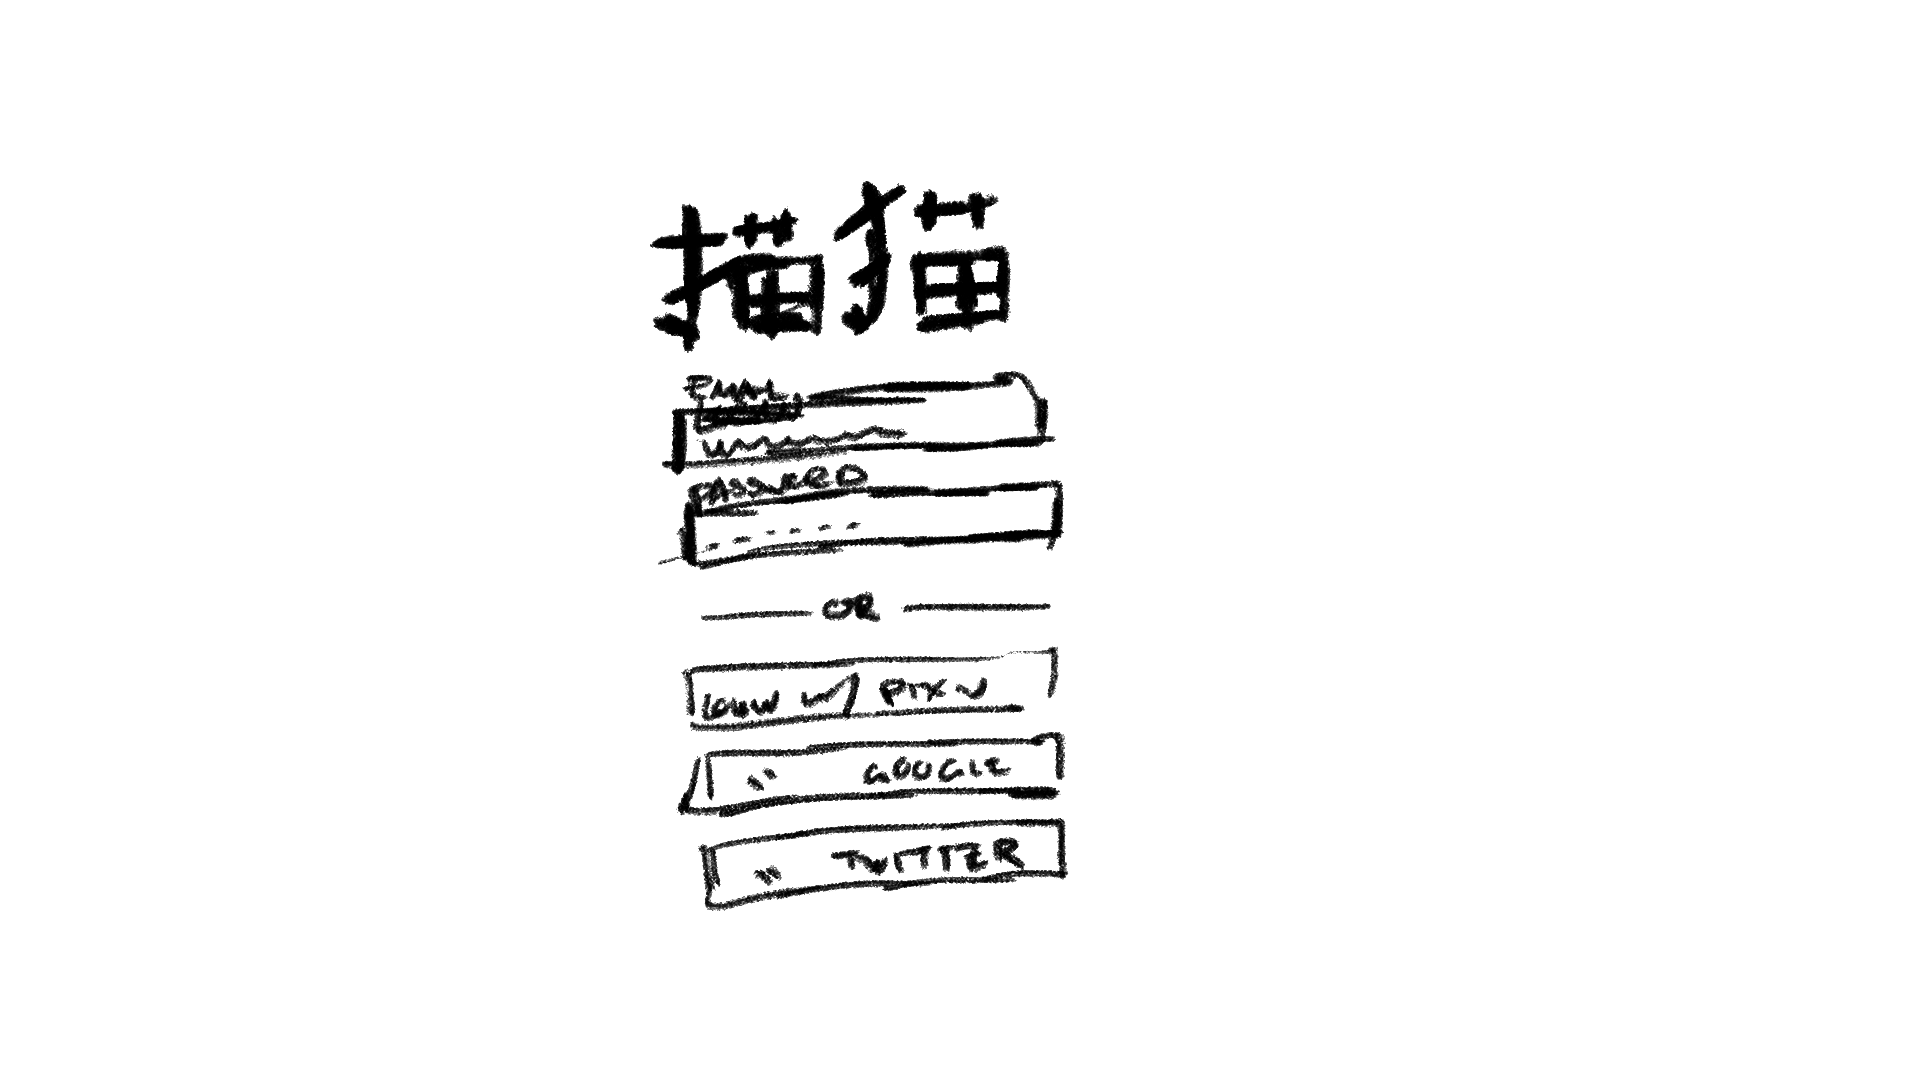 描猫
EMAIL
PASSWORD
OR
LOGIN W/ PIXIV
" GOOGLE
" TWITTER